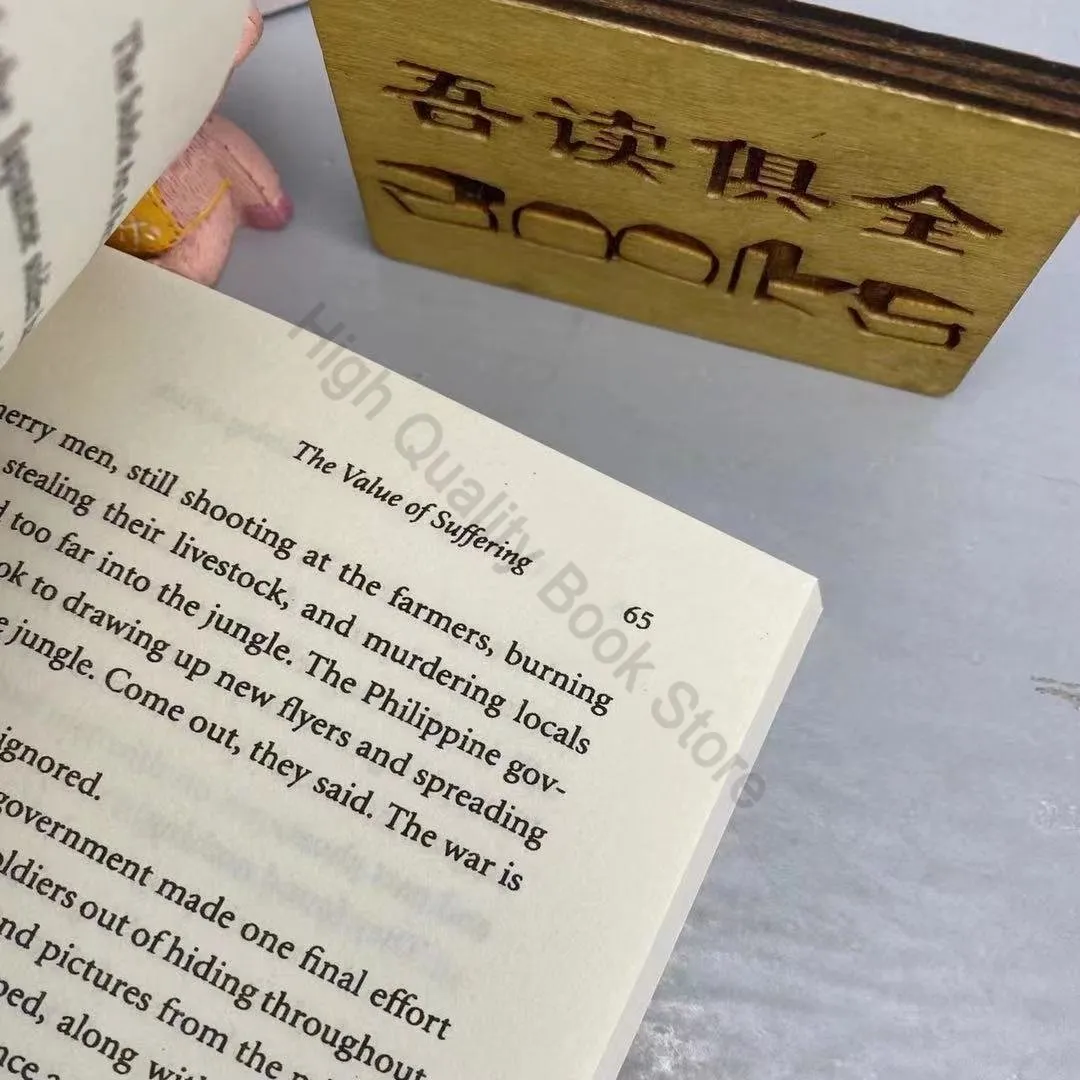 吾读俱全
BOOKS
High Quality Book Store
The Value of Suffering
65
men, still shooting at the farmers, burning
stealing their livestock, and murdering locals
too far into the jungle. The Philippine gov-
to drawing up new flyers and spreading
jungle. Come out, they said. The war is
ignored.
government made one final effort
out of hiding throughout
pictures from the
along